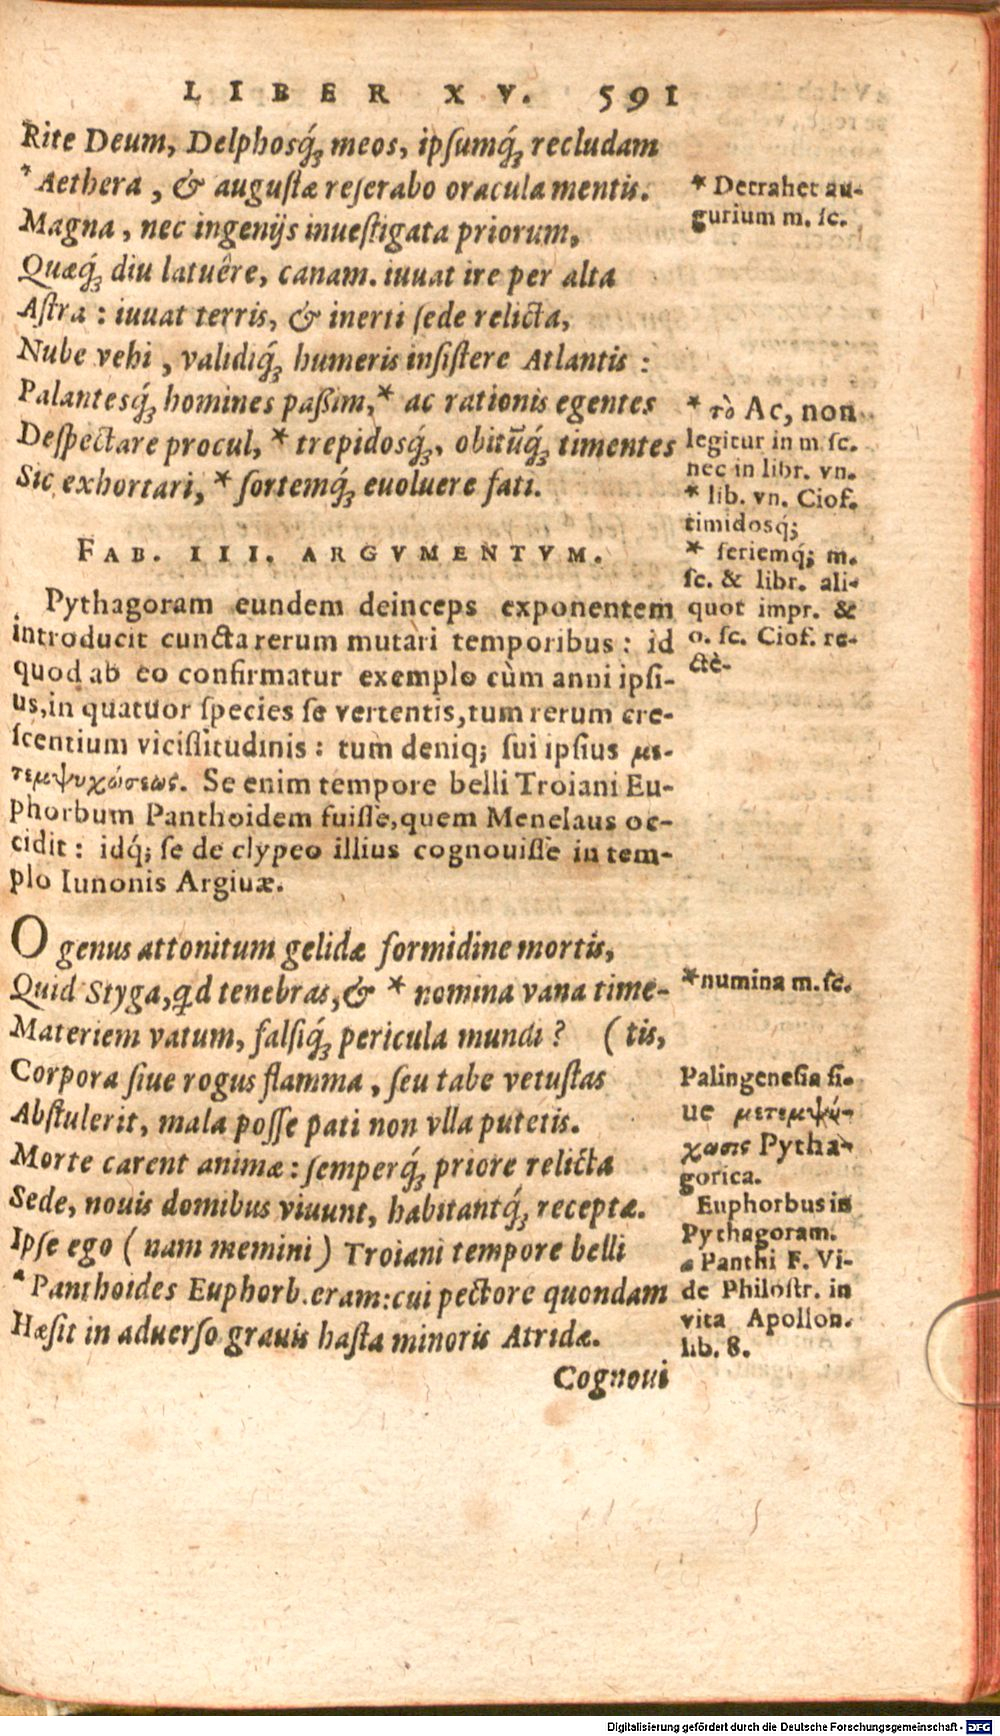 LIBER XV. 591
Rite Deum, Delphosq́; meos, ipſumq́; recludam
* Aethera, & auguſtæ reſerabo oracula mentis.
Magna, nec ingenijs inueſtigata priorum,
Quæq́; diu latuêre, canam. iuuat ire per alta
Aſtra : iuuat terris, & inerti ſede relicta,
Nube vehi, validiq́; humeris inſiſtere Atlantis :
Palantesq́; homines paßim,* ac rationis egentes
Deſpectare procul, * trepidosq́;, obitūq́; timentes
Sic exhortari, * ſortemq́; euoluere fati.
FAB. III. ARGVMENTVM.
Pythagoram eundem deinceps exponentem
introducit cuncta rerum mutari temporibus : id
quod ab eo confirmatur exemplo cùm anni ipſi-
us,in quatuor ſpecies ſe vertentis,tum rerum cre-
ſcentium viciſſitudinis : tum deniq; ſui ipſius με-
τεμψυχώσεως. Se enim tempore belli Troiani Eu-
phorbum Panthoidem fuiſſe,quem Menelaus oc-
cidit : idq́; ſe de clypeo illius cognouiſſe in tem-
plo Iunonis Argiuæ.
O genus attonitum gelidæ formidine mortis,
Quid Styga,qd tenebras,& * nomina vana time-
Materiem vatum, falſiq́; pericula mundi ? (tis,
Corpora ſiue rogus flamma, ſeu tabe vetuſtas
Abſtulerit, mala poſſe pati non vlla putetis.
Morte carent animæ : ſemperq́; priore relicta
Sede, nouis domibus viuunt, habitantq́; receptæ.
Ipſe ego ( nam memini ) Troiani tempore belli
ᵃ Panthoides Euphorb.eram:cui pectore quondam
Hæſit in aduerſo grauis haſta minoris Atridæ.
Cognoui
* Detrahet au-
gurium m. ſc.
* τὸ Ac, non
legitur in m. ſc.
nec in libr. vn.
* lib. vn. Ciof.
timidosq́;
* ſeriemq́; m.
ſc. & libr. ali-
quot impr. &
o. ſc. Ciof. re-
ctè.
*numina m. ſc.
Palingeneſia ſi-
ue μετεμψύ-
χωσις Pytha-
gorica.
Euphorbus in
Pythagoram.
a Panthi F. Vi-
de Philoſtr. in
vita Apollon.
lib. 8.
Digitalisierung gefördert durch die Deutsche Forschungsgemeinschaft - DFG